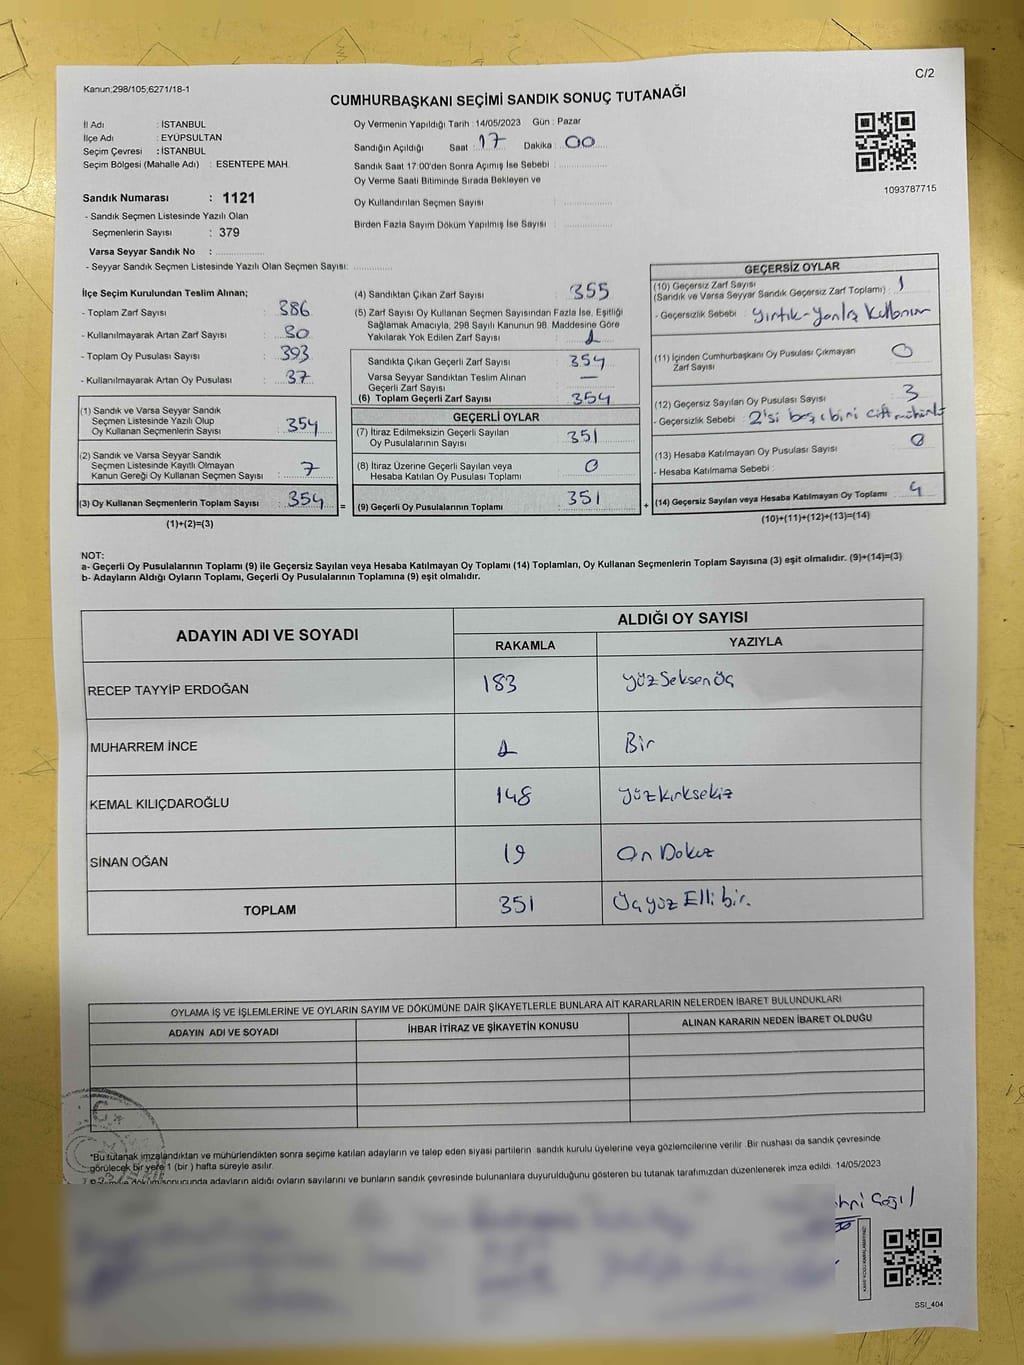 Kanun;298/105;6271/18-1
C/2
CUMHURBAŞKANI SEÇİMİ SANDIK SONUÇ TUTANAĞI
İl Adı : İSTANBUL
İlçe Adı : EYÜPSULTAN
Seçim Çevresi : İSTANBUL
Seçim Bölgesi (Mahalle Adı) : ESENTEPE MAH.
Sandık Numarası : 1121
- Sandık Seçmen Listesinde Yazılı Olan
Seçmenlerin Sayısı : 379
Varsa Seyyar Sandık No :
- Seyyar Sandık Seçmen Listesinde Yazılı Olan Seçmen Sayısı:
Oy Vermenin Yapıldığı Tarih : 14/05/2023 Gün : Pazar
Sandığın Açıldığı Saat : 17 Dakika : 00
Sandık Saat 17:00'den Sonra Açımış İse Sebebi :
Oy Verme Saati Bitiminde Sırada Bekleyen ve
Oy Kullandırılan Seçmen Sayısı :
Birden Fazla Sayım Döküm Yapılmış İse Sayısı :
1093787715
İlçe Seçim Kurulundan Teslim Alınan;
- Toplam Zarf Sayısı : 386
- Kullanılmayarak Artan Zarf Sayısı : 30
- Toplam Oy Pusulası Sayısı : 393
- Kullanılmayarak Artan Oy Pusulası : 37
(1) Sandık ve Varsa Seyyar Sandık
Seçmen Listesinde Yazılı Olup
Oy Kullanan Seçmenlerin Sayısı : 354
(2) Sandık ve Varsa Seyyar Sandık
Seçmen Listesinde Kayıtlı Olmayan
Kanun Gereği Oy Kullanan Seçmen Sayısı : 7
(3) Oy Kullanan Seçmenlerin Toplam Sayısı : 354 =
(1)+(2)=(3)
(4) Sandıktan Çıkan Zarf Sayısı : 355
(5) Zarf Sayısı Oy Kullanan Seçmen Sayısından Fazla İse, Eşitliği
Sağlamak Amacıyla, 298 Sayılı Kanunun 98. Maddesine Göre
Yakılarak Yok Edilen Zarf Sayısı : 1
Sandıkta Çıkan Geçerli Zarf Sayısı : 354
Varsa Seyyar Sandıktan Teslim Alınan
Geçerli Zarf Sayısı : —
(6) Toplam Geçerli Zarf Sayısı : 354
GEÇERLİ OYLAR
(7) İtiraz Edilmeksizin Geçerli Sayılan
Oy Pusulalarının Sayısı : 351
(8) İtiraz Üzerine Geçerli Sayılan veya
Hesaba Katılan Oy Pusulası Toplamı : 0
(9) Geçerli Oy Pusulalarının Toplamı : 351 +
GEÇERSİZ OYLAR
(10) Geçersiz Zarf Sayısı
(Sandık ve Varsa Seyyar Sandık Geçersiz Zarf Toplamı) : 1
- Geçersizlik Sebebi : yırtık-yanlış kullanım
(11) İçinden Cumhurbaşkanı Oy Pusulası Çıkmayan
Zarf Sayısı : 0
(12) Geçersiz Sayılan Oy Pusulası Sayısı : 3
- Geçersizlik Sebebi : 2'si boş, biri çift mühürlü
(13) Hesaba Katılmayan Oy Pusulası Sayısı : 0
- Hesaba Katılmama Sebebi :
(14) Geçersiz Sayılan veya Hesaba Katılmayan Oy Toplamı : 4
(10)+(11)+(12)+(13)=(14)
NOT:
a- Geçerli Oy Pusulalarının Toplamı (9) ile Geçersiz Sayılan veya Hesaba Katılmayan Oy Toplamı (14) Toplamları, Oy Kullanan Seçmenlerin Toplam Sayısına (3) eşit olmalıdır. (9)+(14)=(3)
b- Adayların Aldığı Oyların Toplamı, Geçerli Oy Pusulalarının Toplamına (9) eşit olmalıdır.
ADAYIN ADI VE SOYADI ALDIĞI OY SAYISI
RAKAMLA YAZIYLA
RECEP TAYYİP ERDOĞAN 183 yüzSeksenÜç
MUHARREM İNCE 1 Bir
KEMAL KILIÇDAROĞLU 148 yüzkırksekiz
SİNAN OĞAN 19 On Dokuz
TOPLAM 351 Üçyüz Elli bir.
OYLAMA İŞ VE İŞLEMLERİNE VE OYLARIN SAYIM VE DÖKÜMÜNE DAİR ŞİKAYETLERLE BUNLARA AİT KARARLARIN NELERDEN İBARET BULUNDUKLARI
ADAYIN ADI VE SOYADI İHBAR İTİRAZ VE ŞİKAYETİN KONUSU ALINAN KARARIN NEDEN İBARET OLDUĞU
*Bu tutanak imzalandıktan ve mühürlendikten sonra seçime katılan adayların ve talep eden siyasi partilerin sandık kurulu üyelerine veya gözlemcilerine verilir .Bir nüshası da sandık çevresinde
görülecek bir yere 1 (bir ) hafta süreyle asılır.
sonucunda adayların aldığı oyların sayılarını ve bunların sandık çevresinde bulunanlara duyurulduğunu gösteren bu tutanak tarafımızdan düzenlenerek imza edildi. 14/05/2023
SSI_404